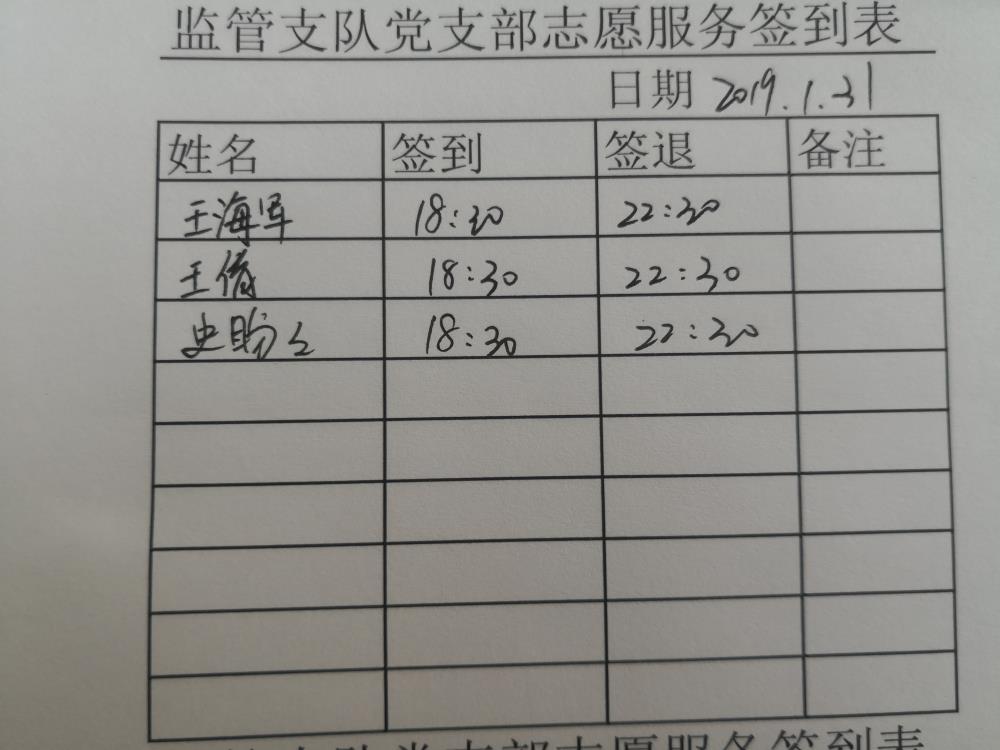 监管支队党支部志愿服务签到表
日期 2019.1.31
姓名 签到 签退 备注
王海军 18:30 22:30
王倩 18:30 22:30
史盼 18:30 22:30
支队党支部志愿服务签到表